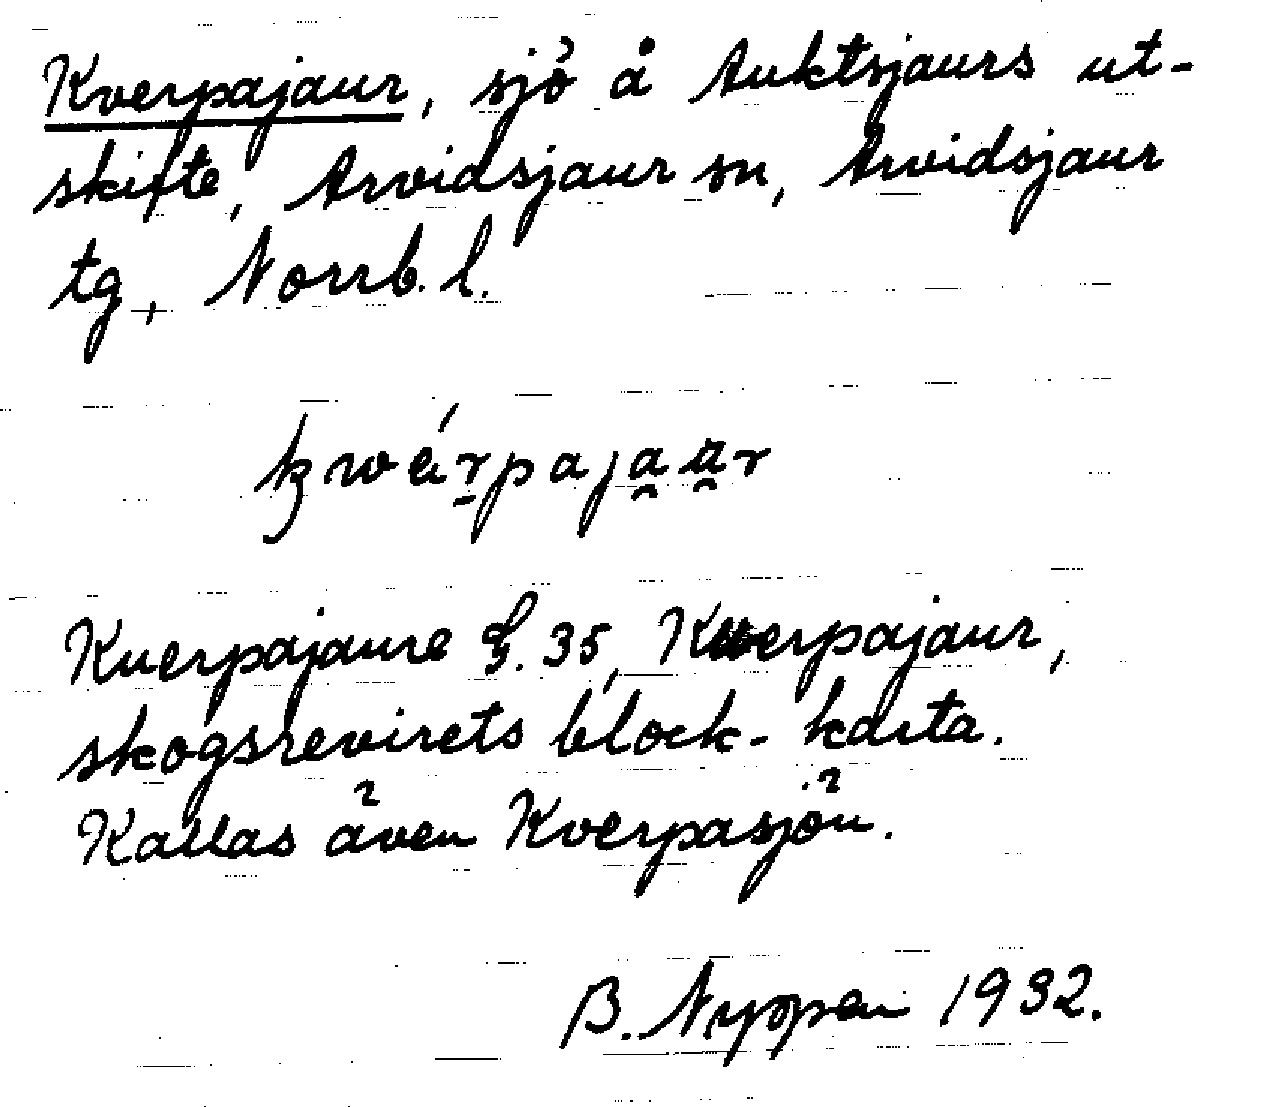 Kverpajaur, sjö å Auktsjaurs ut-
skifte, Arvidsjaur sn, Arvidsjaur
tg, Norrb. l.
Kuerpajaure §. 35, Kuerpajaur,
skogsrevirets block-karta.
Kallas även Kverpasjön.
B. Nyppen 1932.